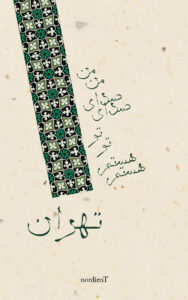 من
من
صدای
صدای
تو
تو
هستم
هستم
تهران
nordienT